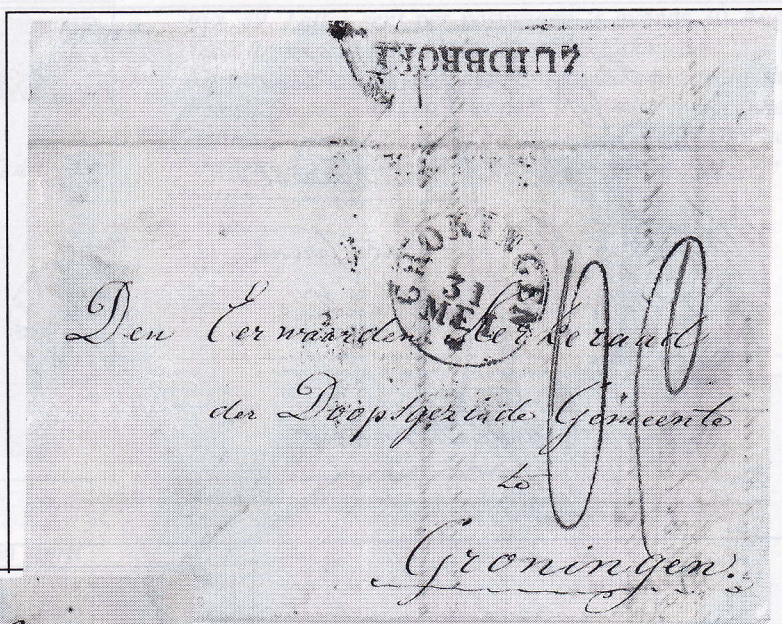 ZUIDBROEK
GRONINGEN
31
MEI
Den Eerwaarden Kerkeraad
der Doopsgezinde Gemeente
te
Groningen.